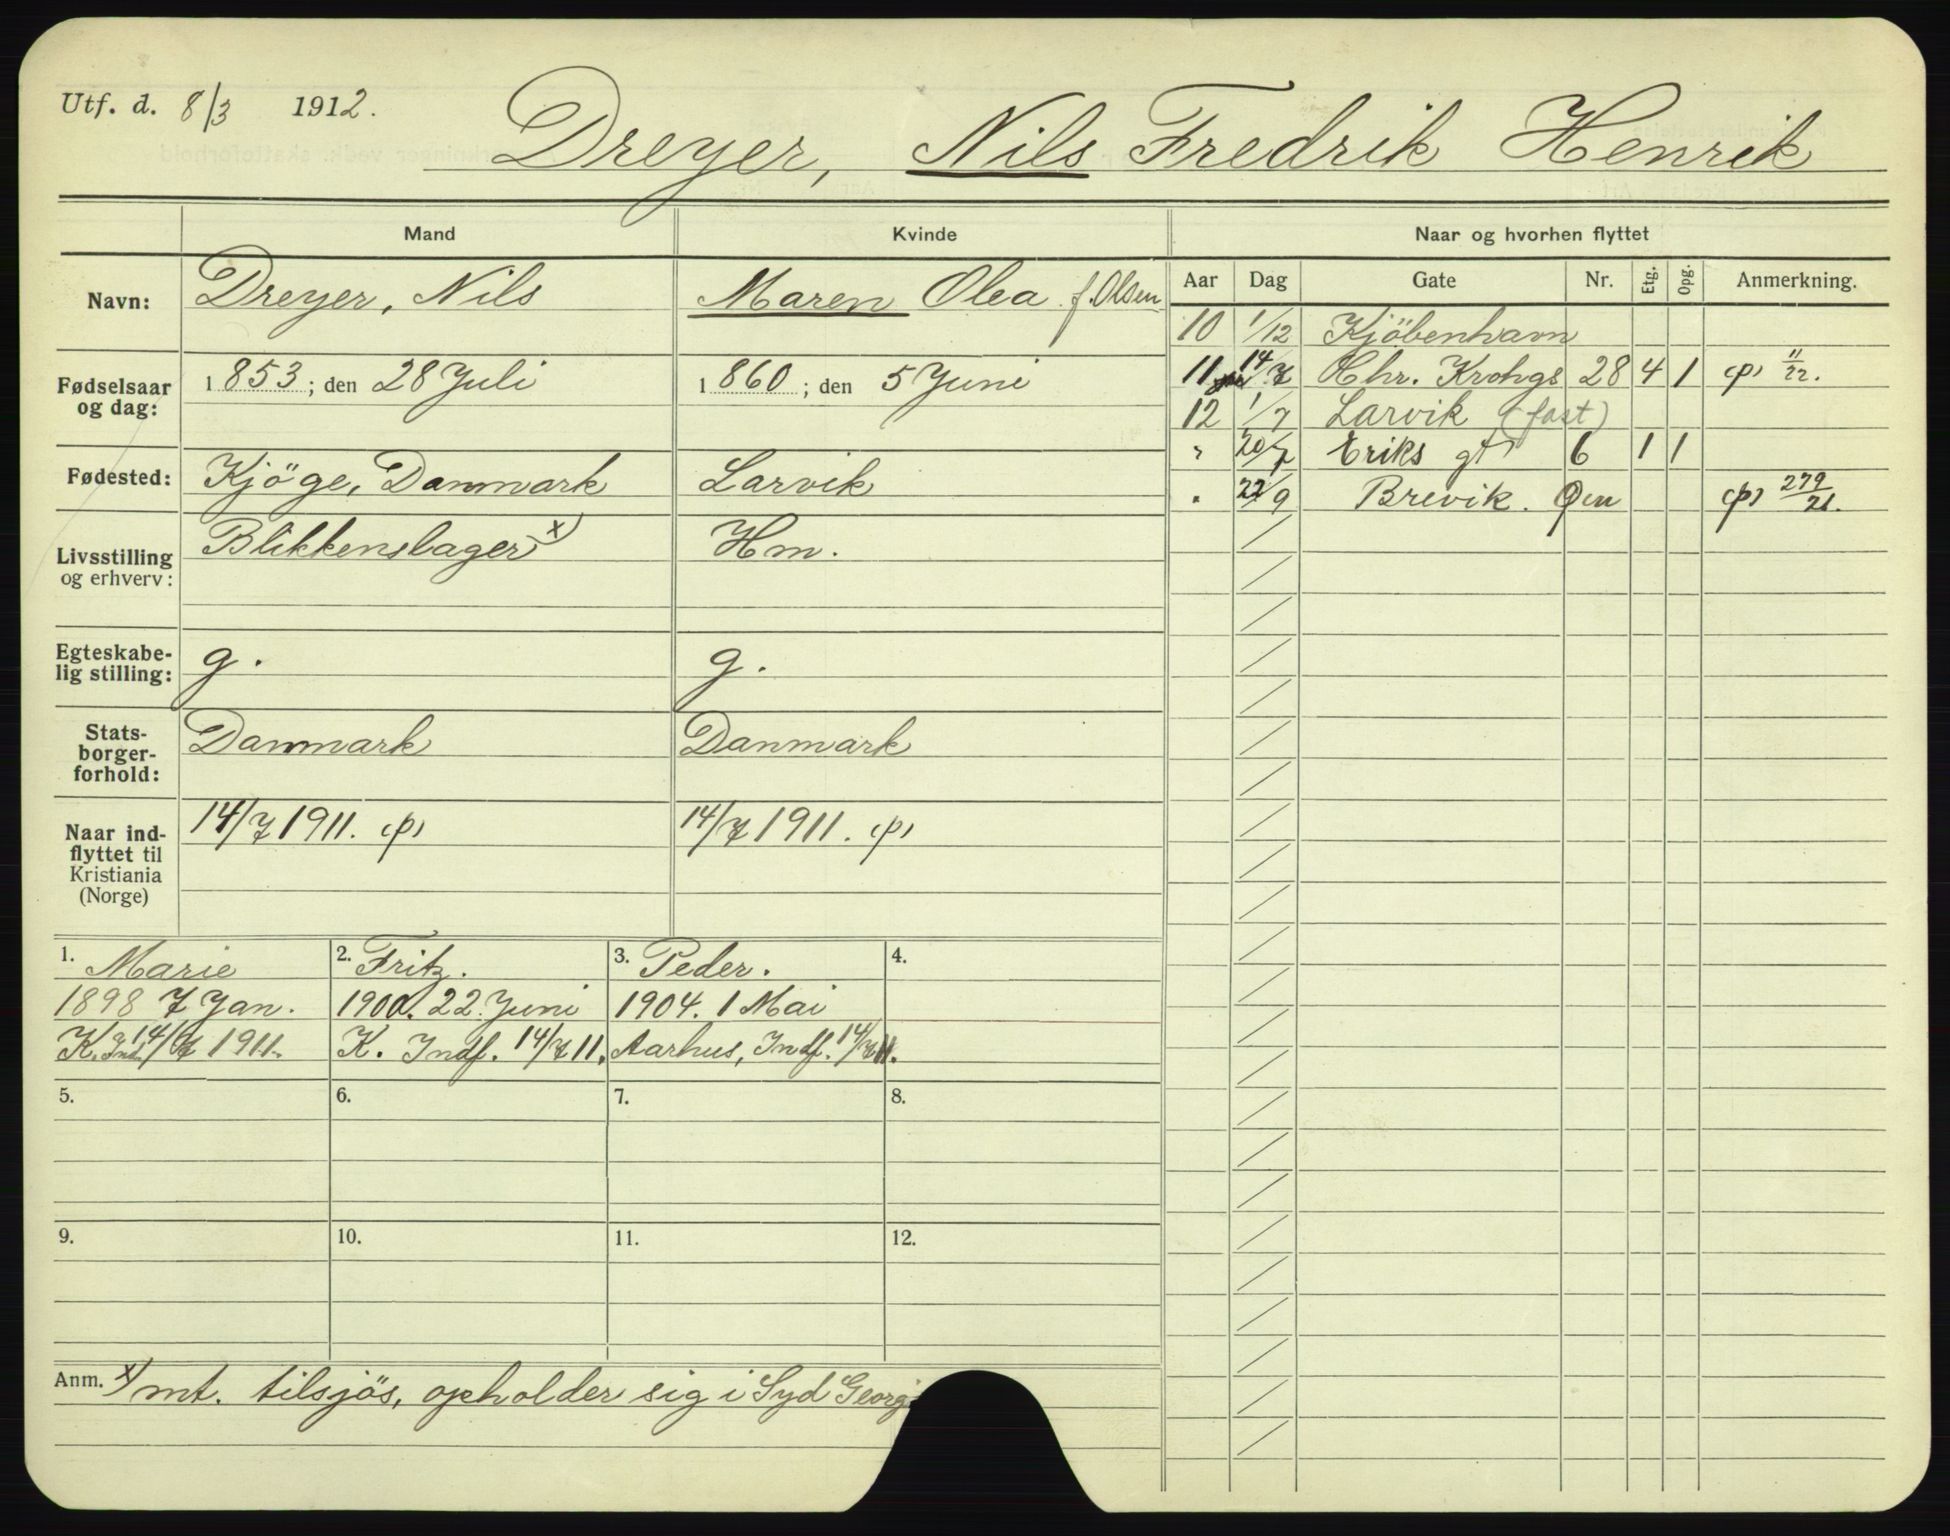 Utf. d. 8/3 1912.
Dreyer, Nils Fredrik Henrik
Mand Kvinde Naar og hvorhen flyttet
Navn: Dreyer, Nils Maren Olea f. Olsen
Fødselsaar og dag: 1853; den 28 Juli 1860; den 5 Juni
Fødested: Kjöge, Danmark Larvik
Livsstilling og erhverv: Blikkenslager x) Hm.
Egteskabe-
lig stilling: g. g.
Stats-
borger-
forhold: Danmark Danmark
Naar ind-
flyttet til
Kristiania
(Norge) 14/7 1911. 14/7 1911.
Aar Dag Gate Nr. Etg. Opg. Anmerkning.
10 1/12 Kjöbenhavn
11 14/7 Chr. Krohgs 28 4 1 11/22.
12 1/7 Larvik (fast)
" 20/7 Eriks gt 6 1 1
" 22/9 Brevik. 279/21.
1. Marie
1898 7 Jan.
K. Ind. 14/7 1911.
2. Fritz.
1900. 22. Juni
K. Indf. 14/7 11.
3. Peder.
1904. 1 Mai
Aarhus, Indf. 14/7 11.
4.
5. 6. 7. 8.
9. 10. 11. 12.
Anm. x) mt. tilsjös, opholder sig i Syd Georgi